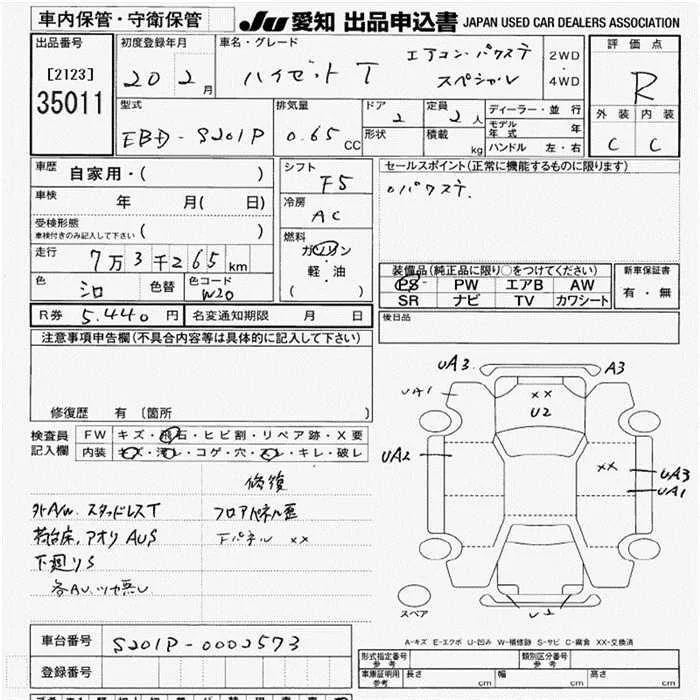 車内保管・守衛保管
JU 愛知 出品申込書 JAPAN USED CAR DEALERS ASSOCIATION
出品番号
[2123]
35011
初度登録年月
20 2月
車名・グレード
ハイゼット T
エアコン・パワステ
スペシャル
2WD
・
4WD
評価点
R
外装 内装
C C
型式
EBD-S201P
排気量
0.65 CC
ドア
2
形状
定員
2人
積載
kg
ディーラー・並行
モデル年式 年
ハンドル 左・右
車歴
自家用・( )
車検
年 月( 日)
受検形態
車検付きのみ記入して下さい ( )
走行
7万3千265km
色
シロ
色替
色コード
W20
シフト
F5
冷房
AC
燃料
ガソリン
・
軽・油
( )
セールスポイント(正常に機能するものに限ります)
○パワステ.
装備品(純正品に限り○をつけてください)
PS PW エアB AW
SR ナビ TV カワシート
新車保証書
有・無
R券 5.440 円
名変通知期限 月 日
後日品
注意事項申告欄(不具合内容等は具体的に記入して下さい)
修復歴 有〔箇所 〕
検査員
記入欄
FW キズ・飛石・ヒビ割・リペア跡・X要
内装 キズ・汚レ・コゲ・穴・スレ・キレ・破レ
修復
外A/W. スタッドレスT
荷台床,アオリ AUS
下廻りS
各AU.ツヤ無し
フロアパネル歪
Fパネル ××
UA3
A3
UA1
××
U2
UA2
××
UA3
UA1
U2
スペア
車台番号
S201P-0002573
登録番号
A-キズ E-エクボ U-凹み W-補修跡 S-サビ C-腐食 XX-交換済
形式指定番号
参考
類別区分番号
参考
車庫証明用
参考
長さ cm
幅 cm
高さ cm